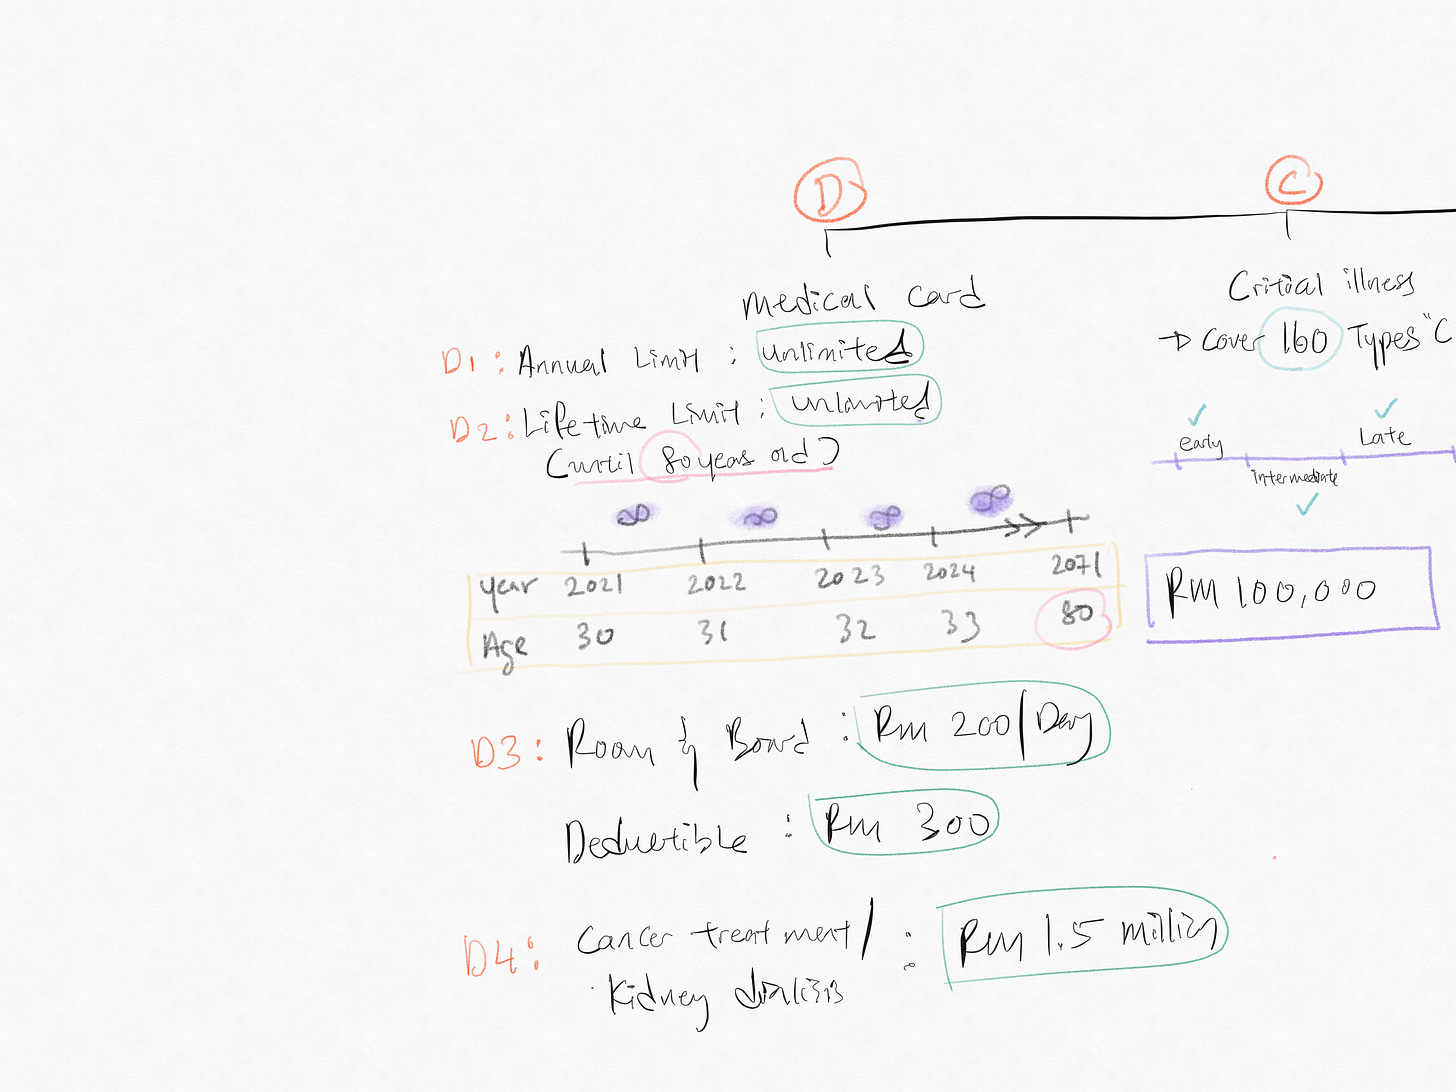 D
C
Medical card
D1: Annual Limit : unlimited
D2: Lifetime Limit : unlimited
(until 80 years old)
∞ ∞ ∞ ∞
year 2021 2022 2023 2024 2071
Age 30 31 32 33 80
D3: Room & Board : RM 200/Day
Deductible : RM 300
D4: Cancer treatment/ : RM 1.5 million
Kidney dialisis
Critical illness
→ Cover 160 Types "C
early Late
intermediate
RM 100,000